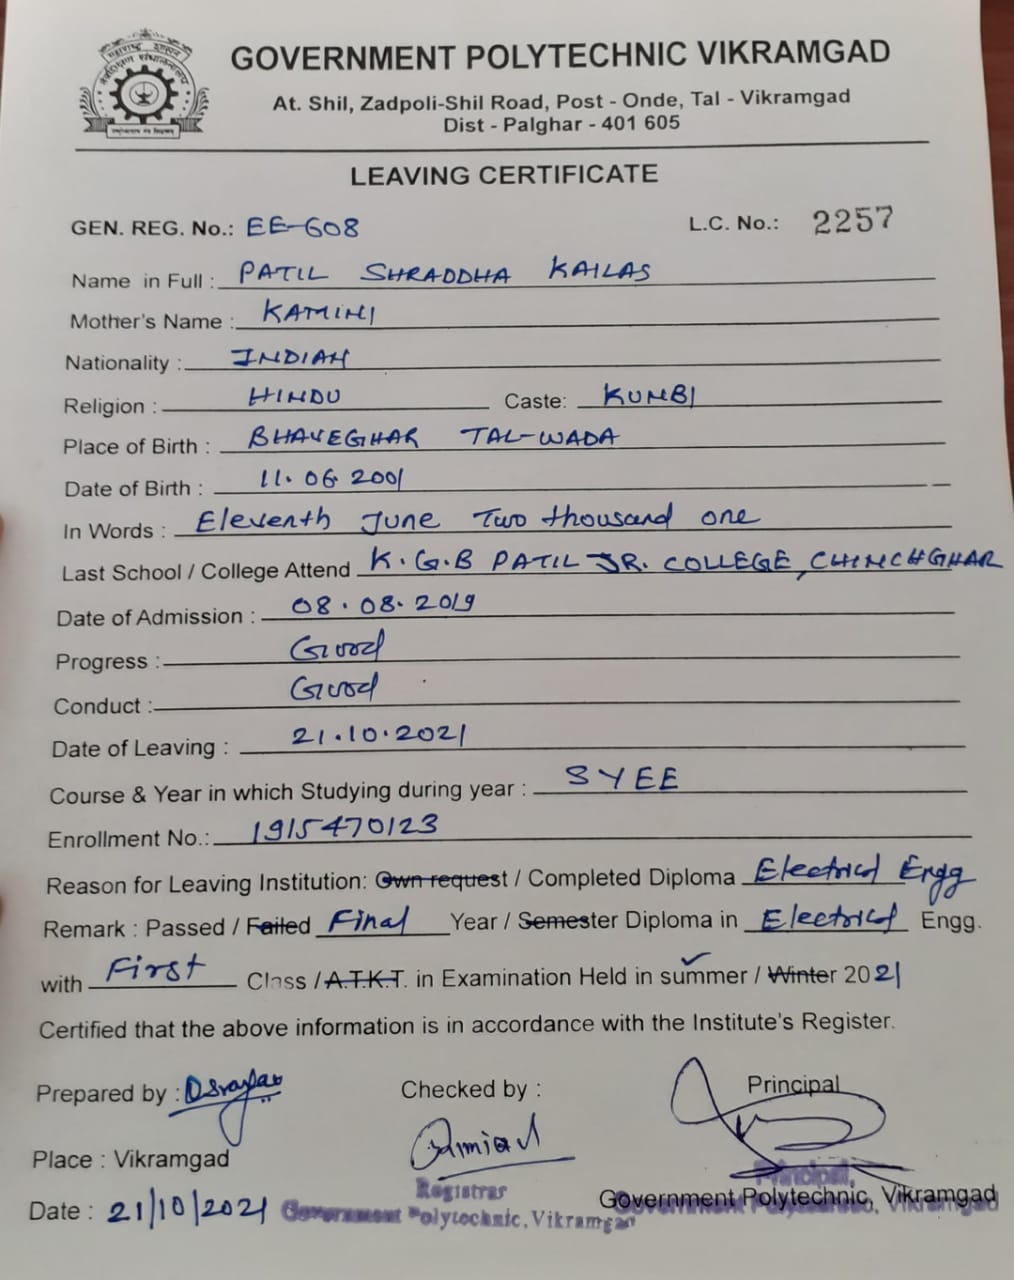 GOVERNMENT POLYTECHNIC VIKRAMGAD
At. Shil, Zadpoli-Shil Road, Post - Onde, Tal - Vikramgad
Dist - Palghar - 401 605
LEAVING CERTIFICATE
GEN. REG. No.: EE-608 L.C. No.: 2257
Name in Full : PATIL SHRADDHA KAILAS
Mother's Name : KAMINI
Nationality : INDIAN
Religion : HINDU Caste: KUNBI
Place of Birth : BHAVEGHAR TAL-WADA
Date of Birth : 11.06.2001
In Words : Eleventh June Two thousand one
Last School / College Attend K.G.B PATIL JR. COLLEGE, CHINCHGHAR
Date of Admission : 08.08.2019
Progress : Good
Conduct : Good
Date of Leaving : 21.10.2021
Course & Year in which Studying during year : SYEE
Enrollment No.: 1915470123
Reason for Leaving Institution: Own request / Completed Diploma Electrical Engg
Remark : Passed / Failed Final Year / Semester Diploma in Electrical Engg.
with First Class / A.T.K.T. in Examination Held in summer / Winter 2021
Certified that the above information is in accordance with the Institute's Register.
Prepared by : Checked by : Principal
Place : Vikramgad
Registrar Principal,
Date : 21/10/2021 Government Polytechnic, Vikramgad Government Polytechnic, Vikramgad